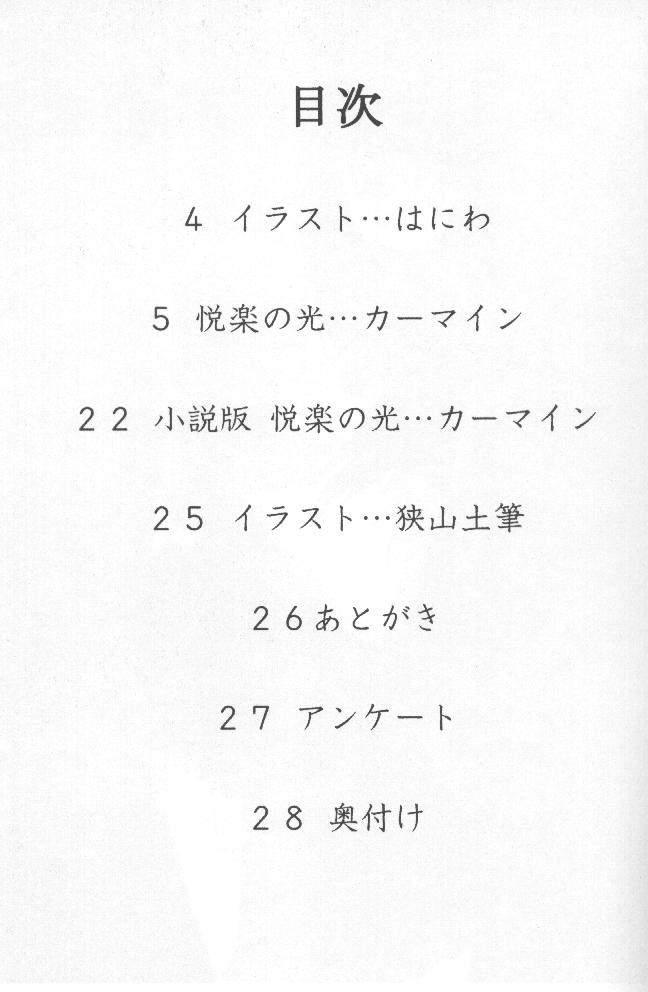 目次
4 イラスト…はにわ
5 悦楽の光…カーマイン
22 小説版 悦楽の光…カーマイン
25 イラスト…狭山土筆
26あとがき
27 アンケート
28 奥付け